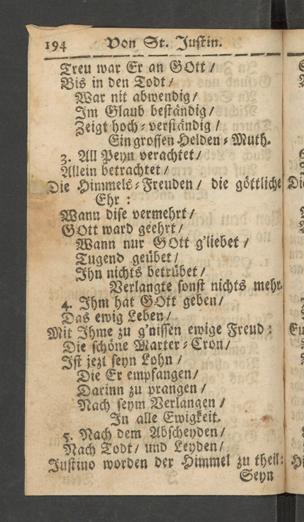 194 Von St. Justin.
Treu war Er an GOtt /
Bis in den Todt /
War nit abwendig /
Im Glaub beständig /
Zeigt hoch-verständig /
Ein grossen Helden-Muth.
3. All Peyn verachtet /
Allein betrachtet /
Die Himmels-Freuden / die göttliche
Ehr:
Wann dise vermehrt /
GOtt ward geehrt /
Wann nur GOtt g'liebet /
Tugend geübet /
Ihn nichts betrübet /
Verlangte sonst nichts mehr.
4. Ihm hat GOtt geben /
Das ewig Leben /
Mit Ihme zu g'niessen ewige Freud:
Die schöne Marter-Cron /
Ist jezt seyn Lohn /
Die Er empfangen /
Darinn zu prangen /
Nach seym Verlangen /
In alle Ewigkeit.
5. Nach dem Abscheyden /
Nach Todt / und Leyden /
Justino worden der Himmel zu theil:
Seyn